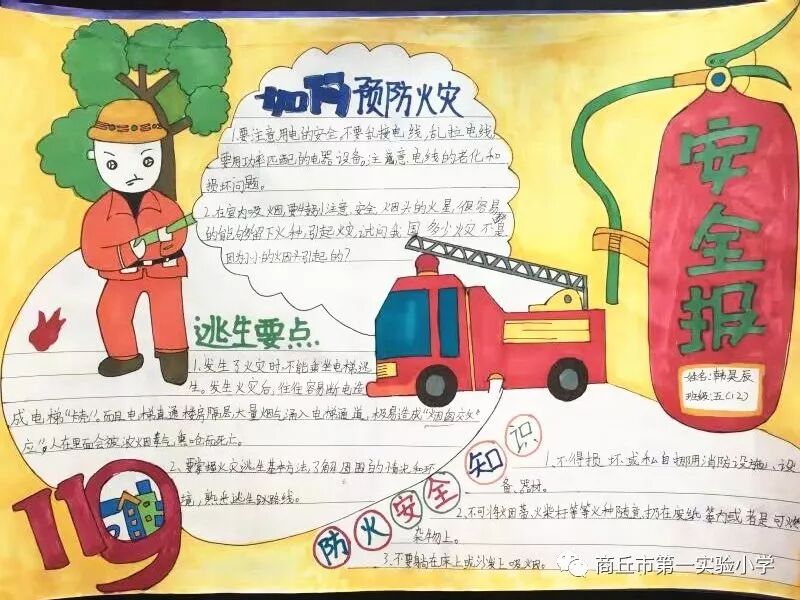 如何预防火灾
1.要注意用电的安全,不要乱接电线,乱拉电线,
要用功率匹配的电器设备。注意电线的老化和
损坏问题。
2.在室内吸烟,要特别注意安全,烟头的火星,很容易
的能够留下火种,引起火灾,试问我国多少火灾不是
因为小小的烟头引起的?
安全报
姓名:韩昊辰
班级:五(12)
逃生要点
1.发生了火灾时,不能乘坐电梯逃
生。发生火灾后,往往容易断电造
成电梯"卡壳"。而且电梯直通楼房隔层,大量烟气涌入电梯通道,极易造成"烟囱效
应",人在里面会被浓烟毒气熏呛而死亡。
2、要掌握火灾逃生基本方法,了解周围的情况和环
境,熟悉逃生路线。
119
防火安全知识
1、不得损坏或私自挪用消防设施、设
备、器材。
2、不可将烟蒂、火柴杆等等火种随意扔在废纸篓内或者是可燃
杂物上。
3、不要躺在床上或沙发上吸烟。
商丘市第一实验小学